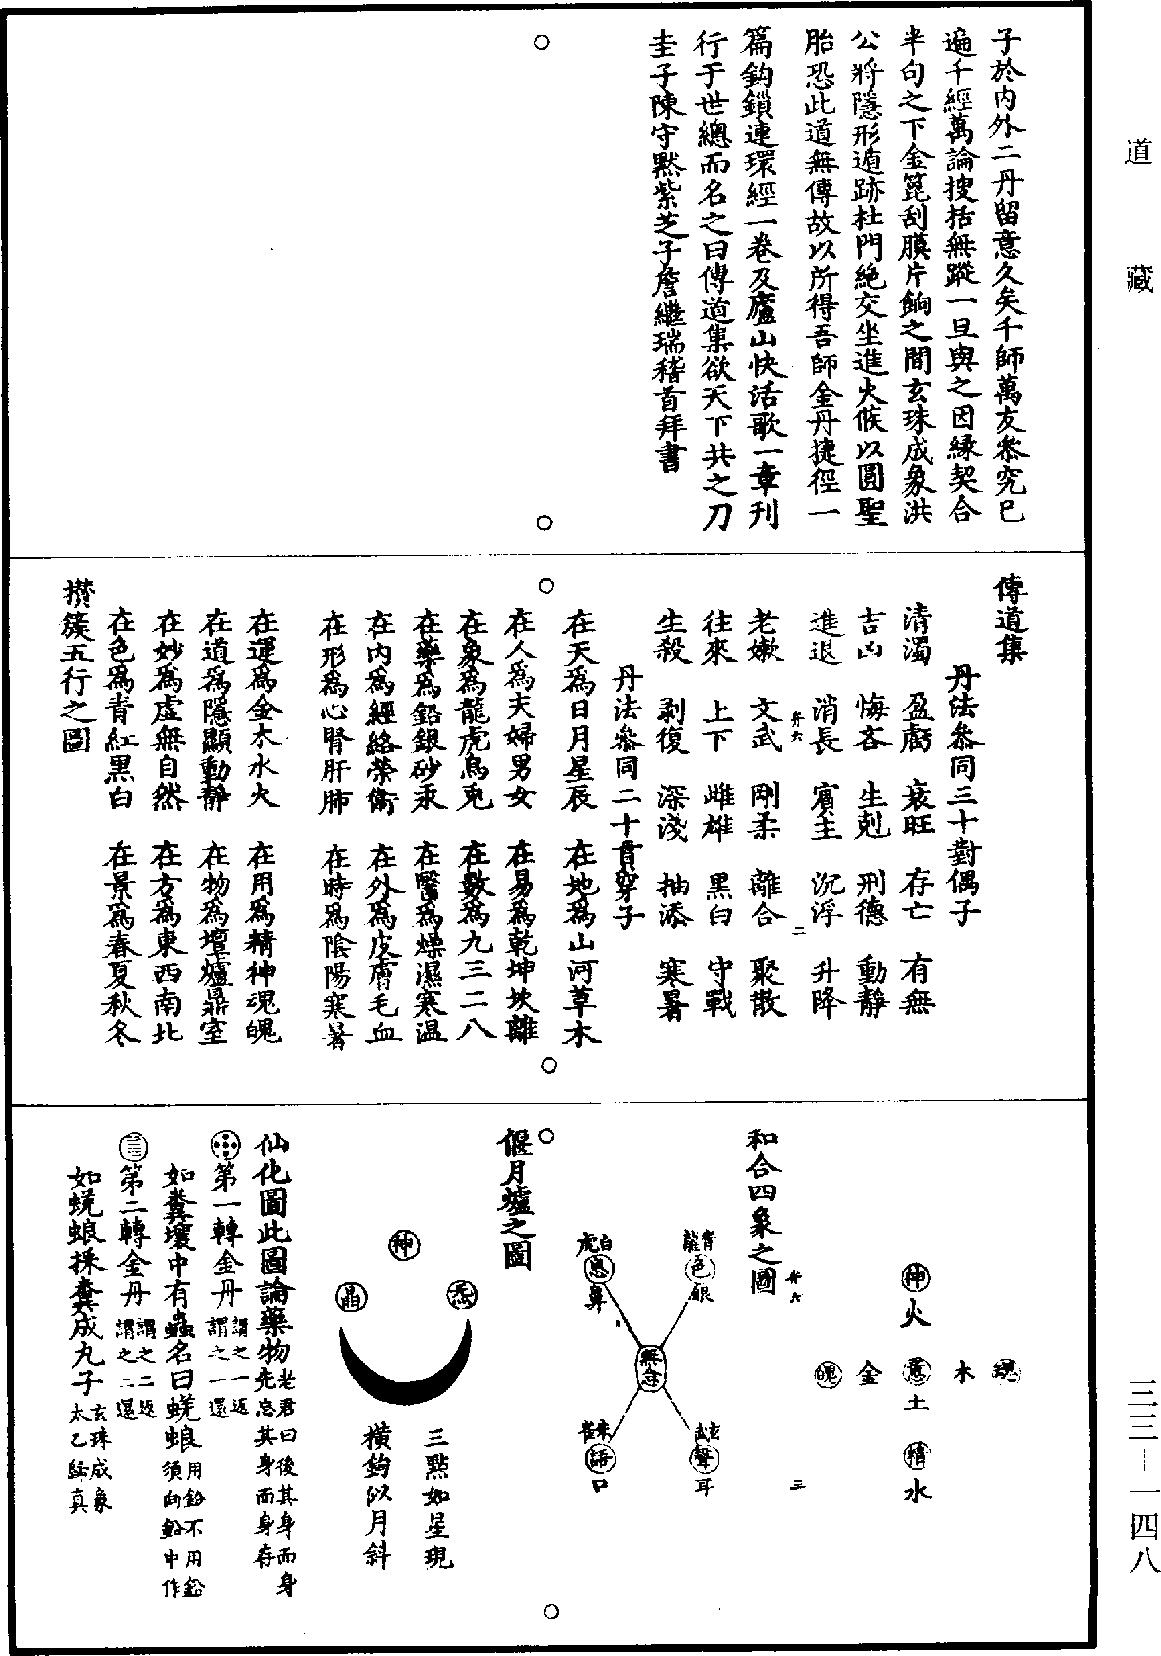 道藏
子於內外二丹留意久矣千師萬友叅究已
遍千經萬論搜括無蹤一旦與之因緣契合
半句之下金篦刮膜片餉之間玄珠成象洪
公將隱形遁跡杜門絕交坐進火候以圓聖
胎恐此道無傳故以所得吾師金丹捷徑一
篇鈎鎖連環經一卷及廬山快活歌一章刊
行于世總而名之曰傳道集欲天下共之刀
圭子陳守默紫芝子詹繼瑞稽首拜書
傳道集
丹法叅同三十對偶子
清濁 盈虧 衰旺 存亡 有無
吉凶 悔吝 生剋 刑德 動靜
進退 消長 賓主 沉浮 升降
弁六 二
老嫩 文武 剛柔 離合 聚散
往來 上下 雌雄 黑白 守戰
生殺 剥復 深淺 抽添 寒暑
丹法叅同二十貫穿子
在天為日月星辰 在地為山河草木
在人為夫婦男女 在易為乾坤坎離
在象為龍虎烏兎 在數為九三二八
在藥為鉛銀砂汞 在醫為燥濕寒温
在內為經絡榮衛 在外為皮膚毛血
在形為心腎肝肺 在時為陰陽寒暑
在運為金木水火 在用為精神魂魄
在道為隱顯動靜 在物為壇爐鼎室
在妙為虛無自然 在方為東西南北
在色為青紅黑白 在景為春夏秋冬
攢簇五行之圖
神 火
魂 木 意 土 金 魄
精 水
弁六 三
和合四象之圖
青龍 色 眼
白虎 息 鼻
無念
玄武 聲 耳
朱雀 語 口
偃月爐之圖
神
炁
晶
三點如星現
橫鉤似月斜
仙化圖此圖論藥物老君曰後其身而身先忘其身而身存
第一轉金丹謂之一返謂之一還
如糞壤中有蟲名曰蜣蜋用鉛不用鉛須向鉛中作
第二轉金丹謂之二返謂之二還
如蜣蜋採糞成丸子玄珠成象太乙歸真
三三—一四八